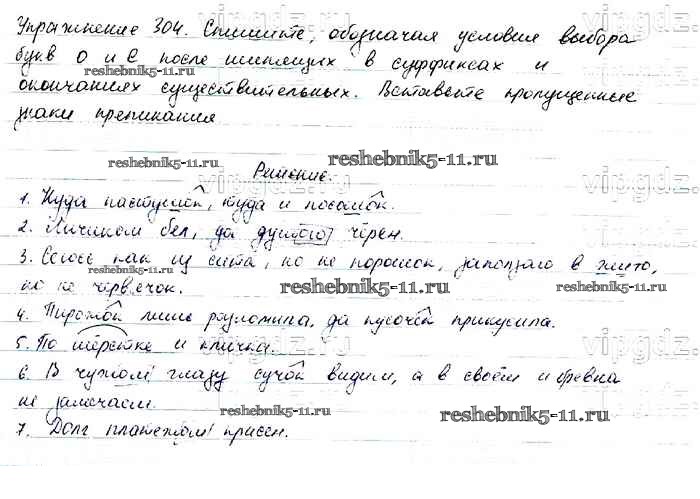 Упражнение 304. Спишите, обозначая условия выбора
букв о и е после шипящих в суффиксах и
окончаниях существительных. Вставьте пропущенные
знаки препинания
Решение.
1. Куда пастушок, туда и посошок.
2. Личиком бел, да душою черен.
3. как из сита, но не порошок, заползло в жито,
но не червячок.
4. Пирожок лишь разломила, да кусочек прикусила.
5. По шерстке и кличка.
6. В чужом глазу сучок видим, а в своём и бревна
не замечаем.
7. Долг платежом красен.
reshebnik5-11.ru
reshebnik5-11.ru
reshebnik5-11.ru
reshebnik5-11.ru
reshebnik5-11.ru
reshebnik5-11.ru
reshebnik5-11.ru
vipgdz.ru
vipgdz.ru
vipgdz.ru